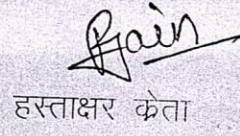 Rjain
हस्ताक्षर क्रेता